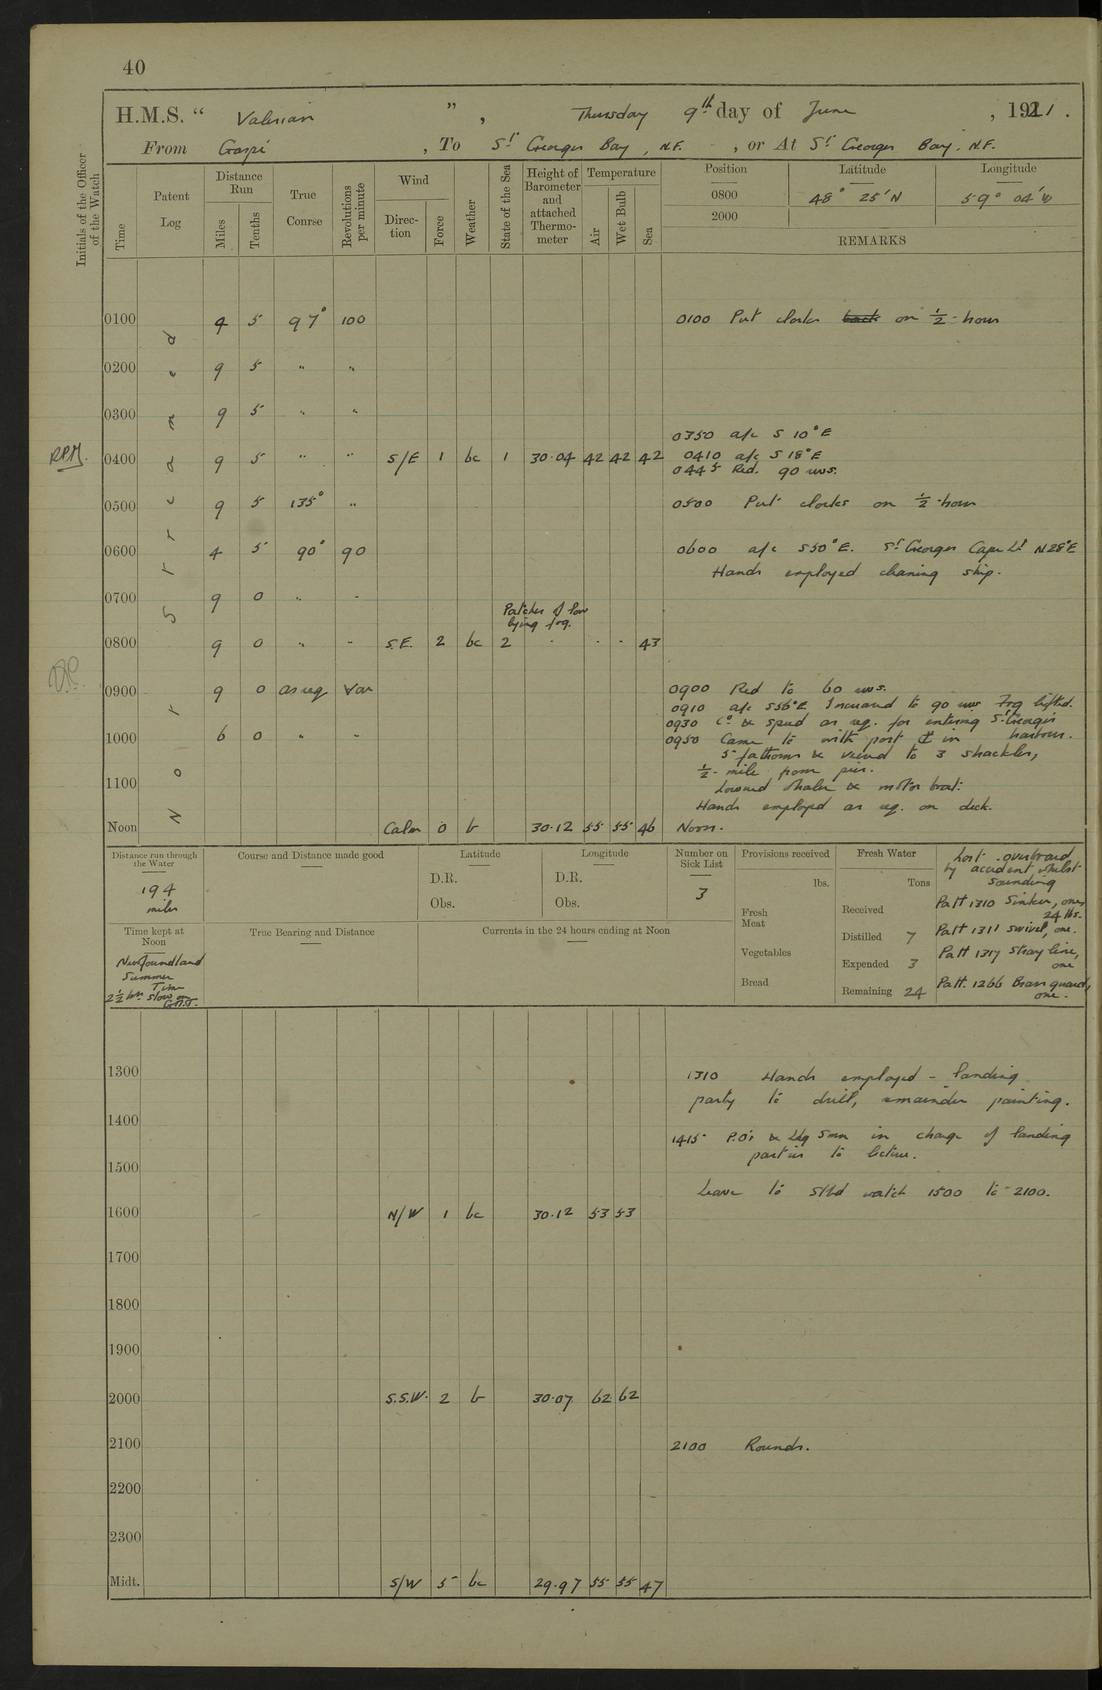 40
H.M.S. " Valerian ", Thursday 9th day of June, 1921.
From Gaspé, To St Georges Bay, N.F. , or At St Georges Bay, N.F.
Initials of the Officer of the Watch
Time
Patent Log
Distance Run
Miles
Tenths
True Course
Revolutions per minute
Wind
Direction
Force
Weather
State of the Sea
Height of Barometer and attached Thermometer
Temperature
Air
Wet Bulb
Sea
Position
0800
2000
Latitude
48° 25' N
Longitude
59° 04' W
REMARKS
Not Streamed
0100 4 5 97° 100 0100 Put clocks back on ½-hour
0200 9 5 " "
0300 9 5 " "
0350 a/c S 10° E
RPM. 0400 9 5 " " S/E 1 bc 1 30.04 42 42 42 0410 a/c S 18° E
0445 Red. 90 revs.
0500 9 5 135° " 0500 Put clocks on ½-hour
0600 4 5 90° 90 0600 a/c S50°E. St Georges Cape Lt N28°E
Hands employed cleaning ship.
0700 9 0 " "
Patches of low
lying fog.
0800 9 0 " " S.E. 2 bc 2 - - - 43
0900 9 0 as req Var 0900 Red to 60 revs.
0910 a/c S56°E Increased to 90 revs Fog lifted.
0930 Co & speed as req. for entering St Georges
harbour.
1000 6 0 " " 0950 Came to with port in
5 fathoms & veered to 3 shackles,
½-mile from pier.
1100 Lowered whaler & motor boat.
Hands employed as req. on deck.
Noon Calm 0 b 30.12 55 55 46 Noon.
Distance run through the Water
194
miles
Course and Distance made good
Latitude
D.R.
Obs.
Longitude
D.R.
Obs.
Number on Sick List
3
Provisions received
lbs.
Fresh Meat
Vegetables
Bread
Fresh Water
Tons
Received
Distilled 7
Expended 3
Remaining 24
Lost overboard
by accident whilst
sounding
Patt 1310 Sinker, one,
24 lbs.
Patt 1311 swivel, one.
Patt 1317 Stray line,
one
Patt. 1266 Brass guard,
one.
Time kept at Noon
Newfoundland
Summer
Time
2½ hrs slow on
G.M.T.
True Bearing and Distance
Currents in the 24 hours ending at Noon
1300 1310 Hands employed - landing
party to drill, remainder painting.
1400
1415 P.O's & Ldg Smn in charge of landing
parties to lecture.
1500
Leave to Stbd watch 1500 to 2100.
1600 N/W 1 bc 30.12 53 53
1700
1800
1900
2000 S.S.W. 2 b 30.07 62 62
2100 2100 Rounds.
2200
2300
Midt. S/W 5 bc 29.97 55 55 47